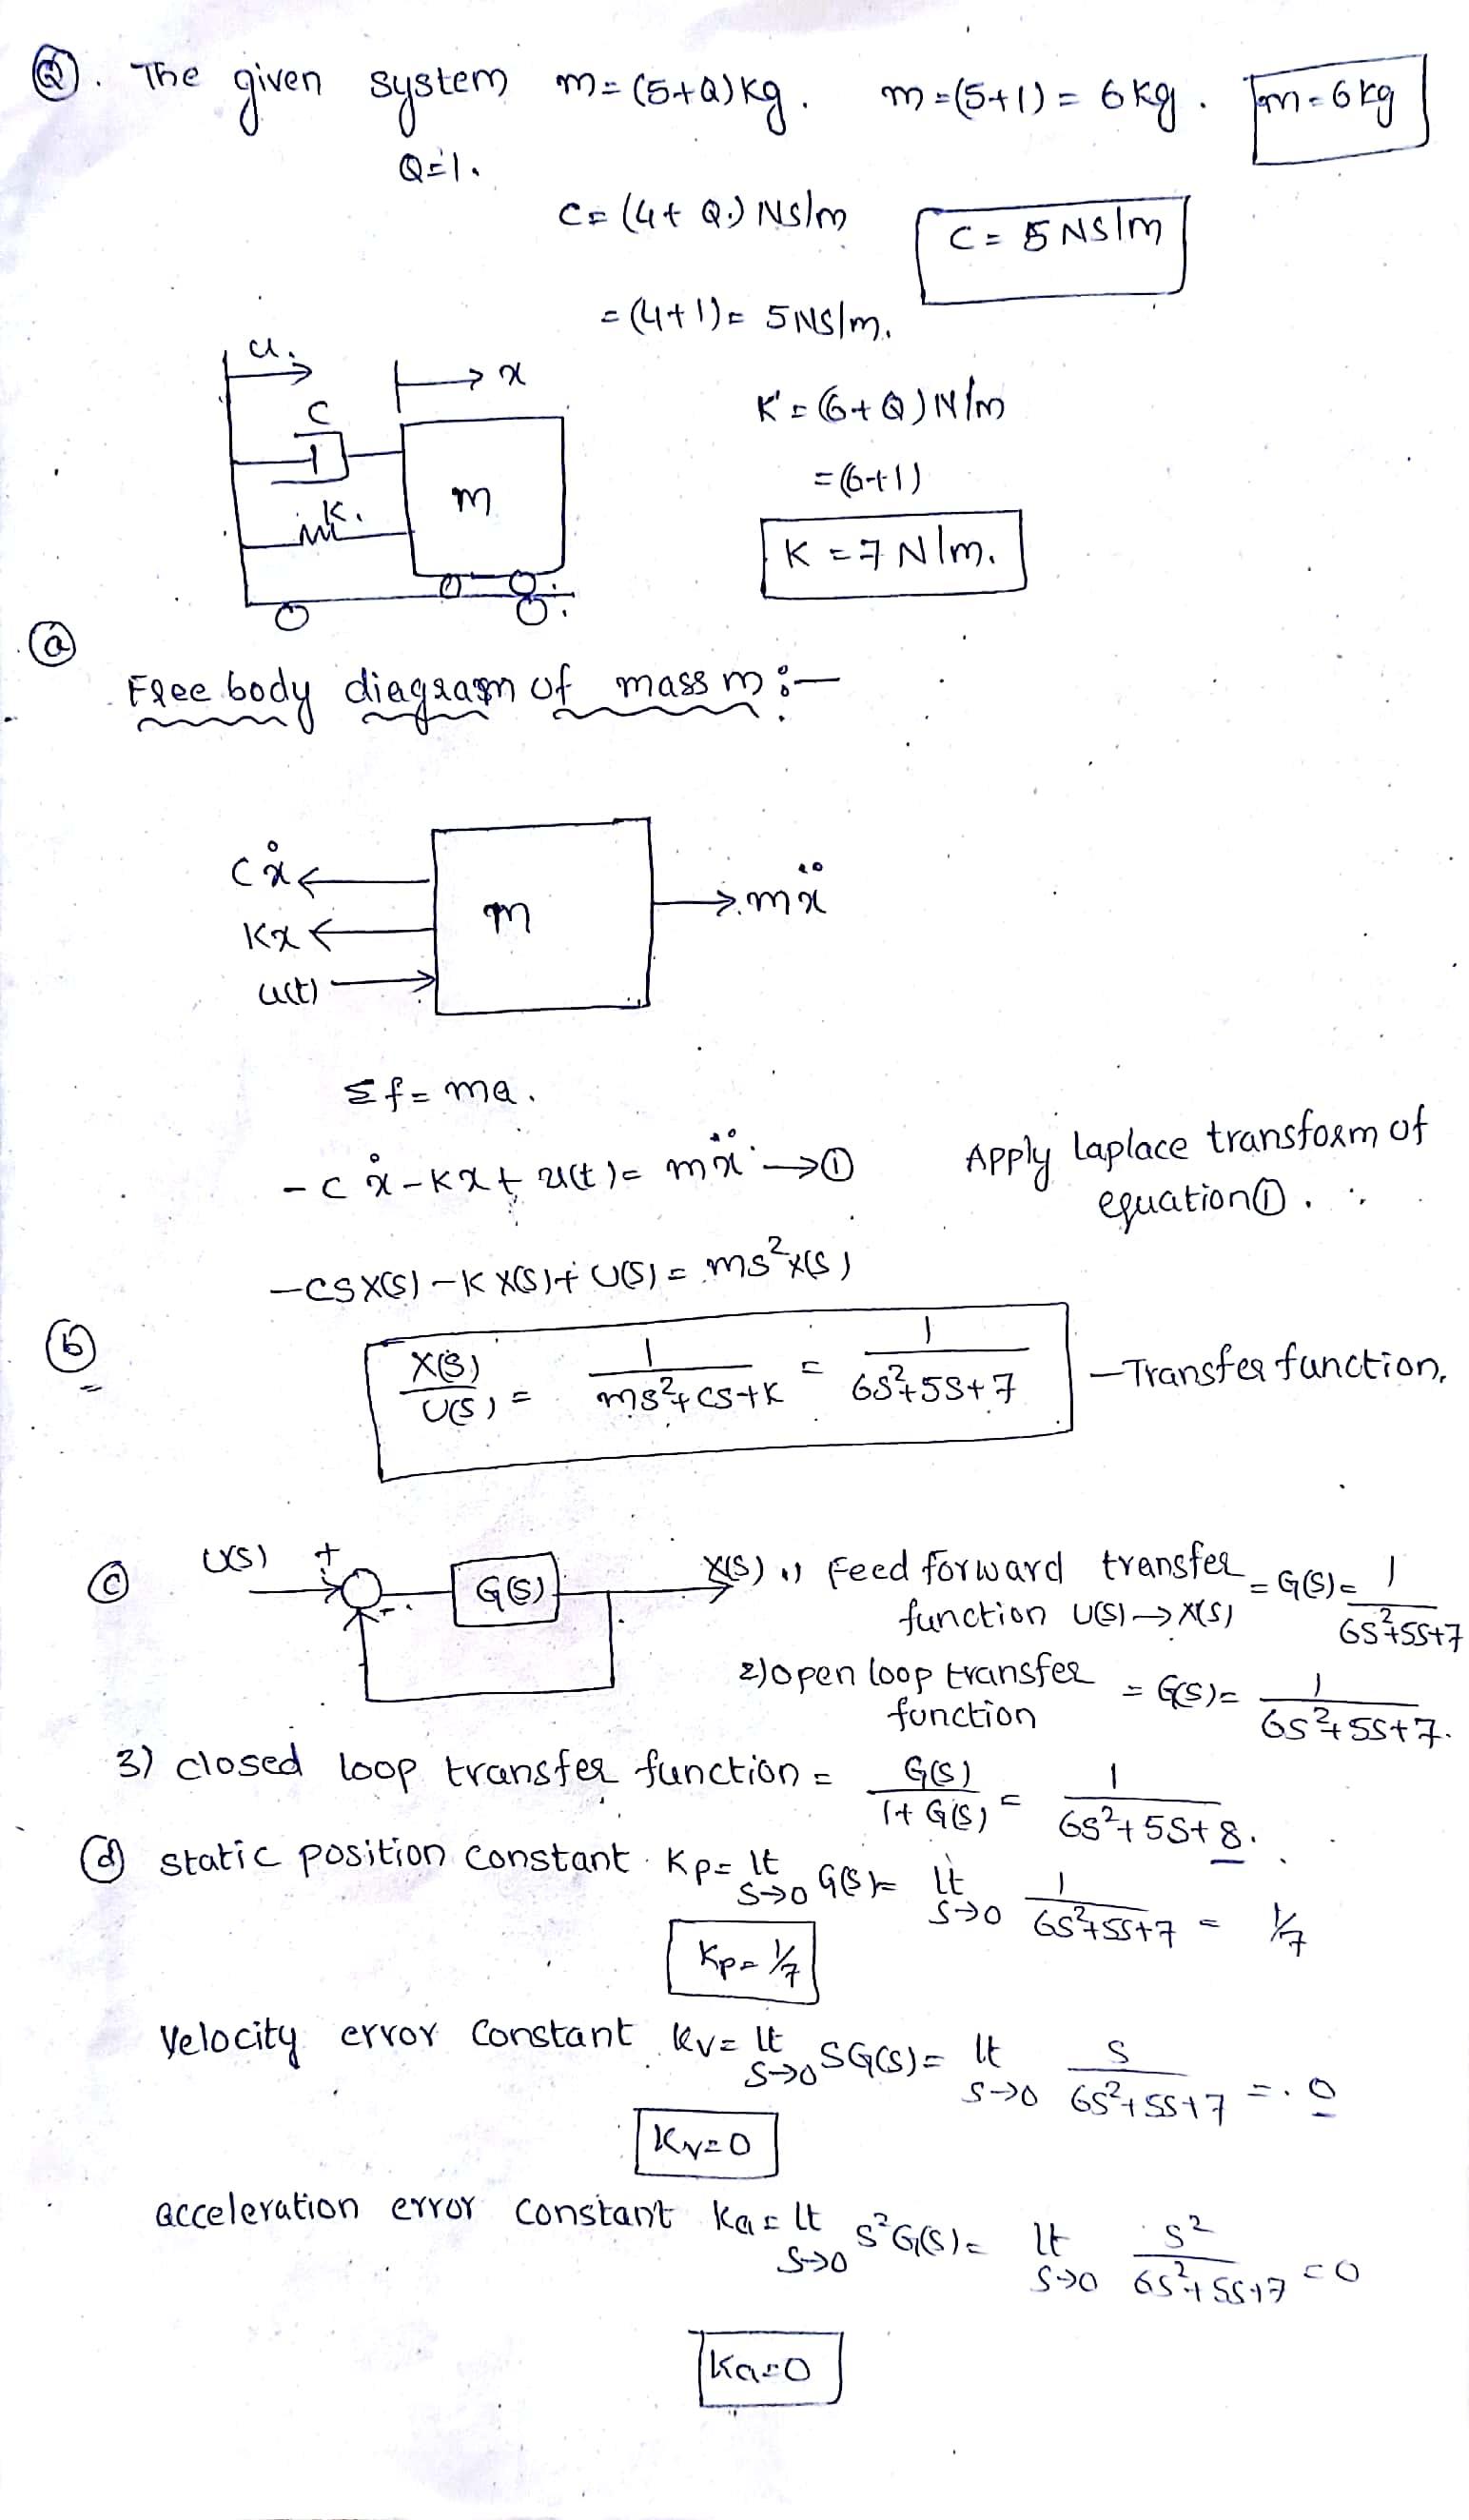 Q. The given system m = (5+Q)kg. m = (5+1) = 6kg. m = 6kg
Q=1.
C = (4+Q.) Ns/m C = 5 Ns/m
= (4+1) = 5Ns/m.
u. x
C
K = (6+Q) N/m
= (6+1)
K. m
K = 7 N/m.
(a)
Free body diagram of mass m :-
cẋ
Kx m mẍ
u(t)
Σf = ma.
-cẋ - Kx + u(t) = mẍ → ① Apply laplace transform of
equation ①.
-CSX(S) - K X(S) + U(S) = ms²X(S)
(b)
X(S)/U(S) = 1/(ms²+cs+K) = 1/(6S²+5S+7) - Transfer function.
(c) U(S) + - G(S) X(S) 1) Feed forward transfer function U(S) → X(S) = G(S) = 1/(6S²+5S+7)
2) open loop transfer function = G(S) = 1/(6S²+5S+7).
3) closed loop transfer function = G(S)/(1+G(S)) = 1/(6S²+5S+8).
(d) static position constant. Kp = lt S→0 G(S) = lt S→0 1/(6S²+5S+7) = 1/7
Kp = 1/7
Velocity error constant Kv = lt S→0 SG(S) = lt S→0 S/(6S²+5S+7) = 0
Kv=0
acceleration error constant Ka = lt S→0 S²G(S) = lt S→0 S²/(6S²+5S+7) = 0
Ka=0